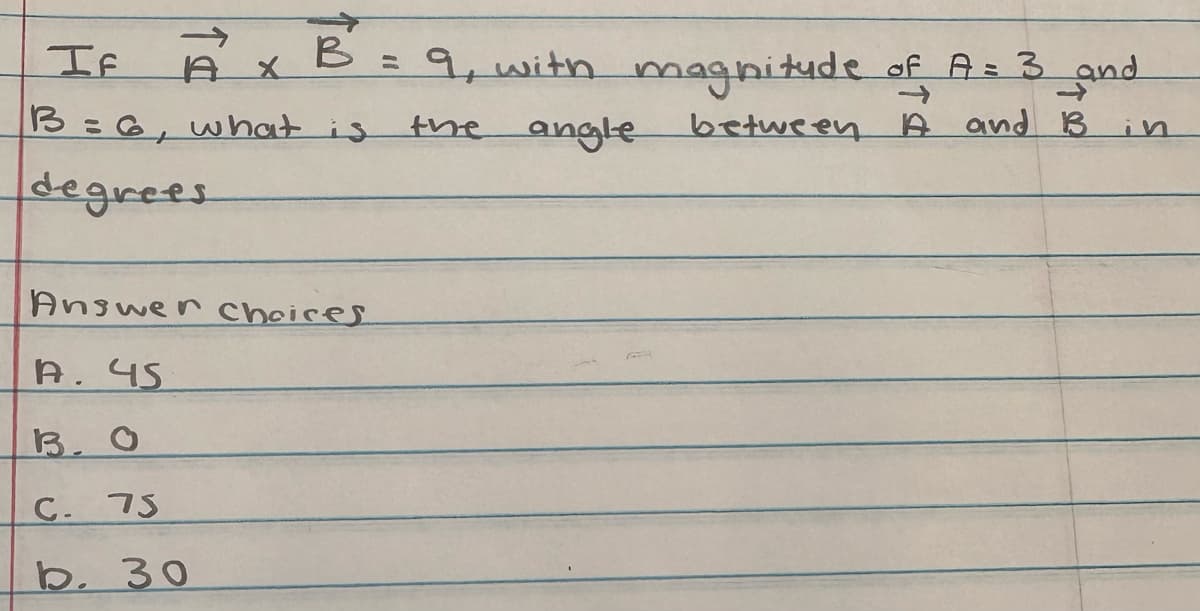 If A⃗ x B⃗ = 9, with magnitude of A = 3 and
B = 6, what is the angle between A⃗ and B⃗ in
degrees
Answer choices
A. 45
B. 0
C. 75
D. 30